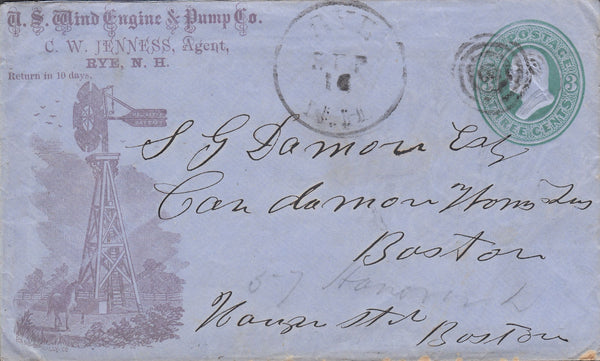 U. S. Wind Engine & Pump Co.
C. W. JENNESS, Agent,
RYE, N. H.
Return in 10 days.
RYE
SEP
16
POSTAGE
THREE CENTS
S G Damon Esq
Care damon
Boston
57 Hanover
Boston